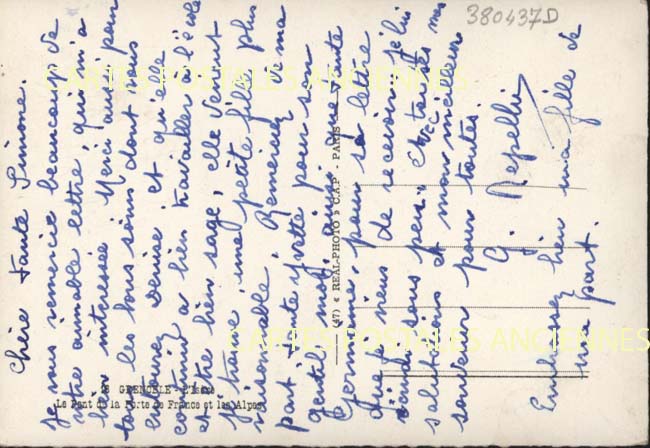 380437D
Chère tante Simone.
Je vous remercie beaucoup de
votre aimable lettre, qui m'a
bien intéressée. Merci aussi pour
tous les bons soins dont vous
entourez Denise et qu'elle
continue à bien travailler à l'école
et être bien sage, elle devient
je trouve, une petite fille plus
raisonnable. Remerciez de ma
part, tante Yvette pour son
gentil mot, ainsi que tante
Germaine, pour sa lettre
que je viens de recevoir, je lui
sous peu. Avec toutes nos
salutations et mon meilleur
souvenir pour toutes.
G. Repellin
Embrassez bien ma fille de
ma part.
38 GRENOBLE (Isère)
Le Pont de la Porte de France et les Alpes
(47) « REAL-PHOTO » C.A.P. - PARIS
CARTES POSTALES ANCIENNES
CARTES POSTALES ANCIENNES